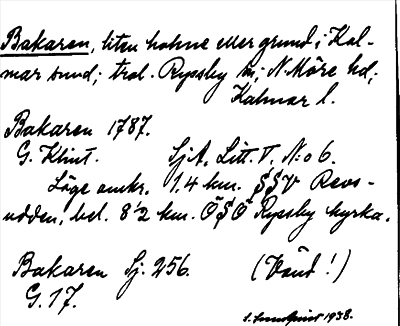 Bakaren, liten holme eller grund i Kal-
mar sund; trol. Ryssby sn; N. Möre hd;
Kalmar l.
Bakaren 1787.
G. Klint. SjA. Litt. V. No 6.
Läge omkr. 1.4 km. SSV Revs-
udden, bel. 8 1/2 km. ÖSÖ Ryssby kyrka.
Bakaren Sj. 256. (Vänd!)
G. 17.
1938.